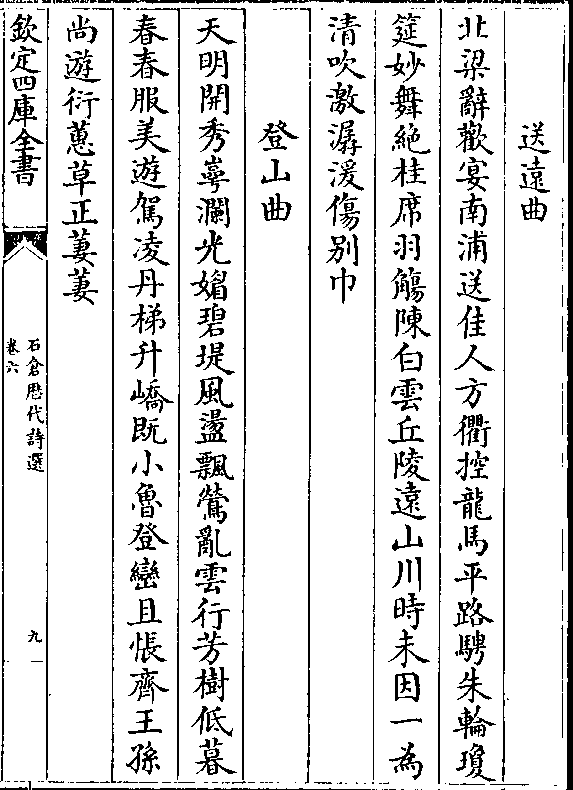 送遠曲
北梁辭歡宴南浦送佳人方衢控龍馬平路騁朱輪瓊
筵妙舞絶桂席羽觴陳白雲丘陵遠山川時未因一為
清吹激潺湲傷别巾
登山曲
天明開秀崿瀾光媚碧堤風盪飄鶯亂雲行芳樹低暮
春春服美遊駕凌丹梯升嶠既小魯登巒且悵齊王孫
尚遊衍蕙草正萋萋
欽定四庫全書
石倉歴代詩選
卷六
九